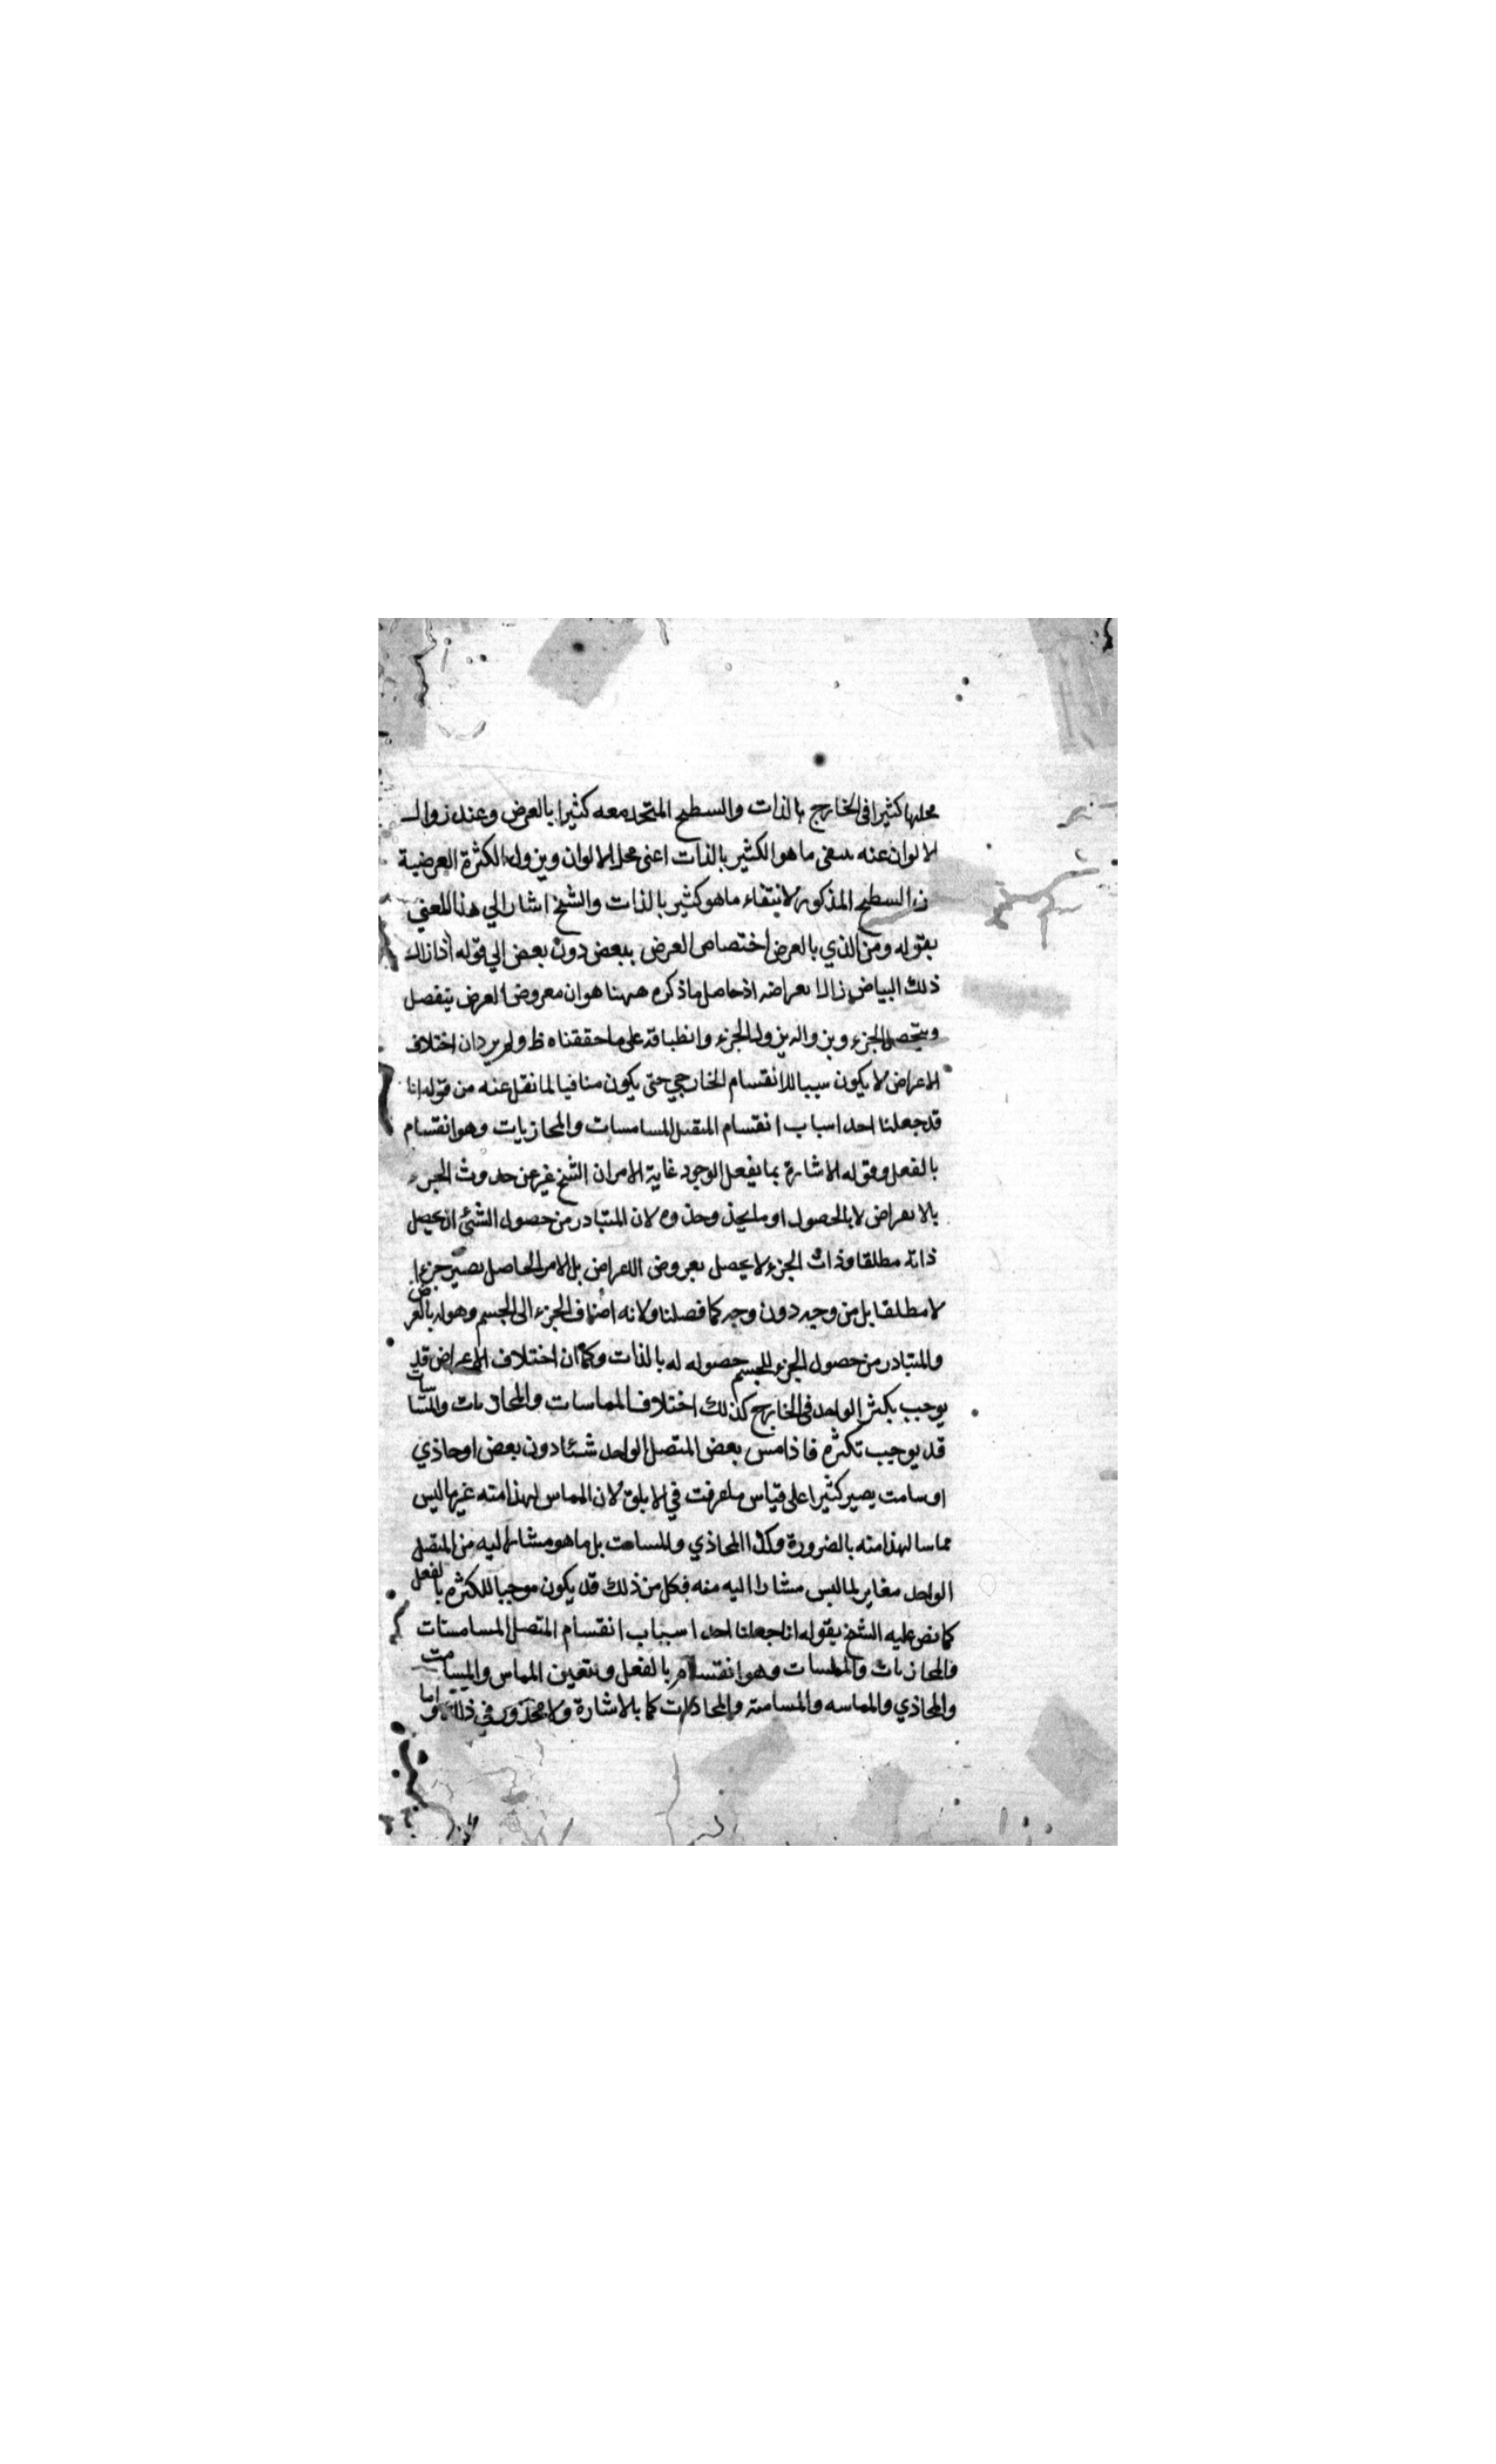 محلها كثيرا فى الخارج بالذات والسطح المتحد معه كثيرا بالعرض وعند زوال
الالوان عنه يبقى ما هو الكثير بالذات اعنى محل الالوان ويزول الكثرة العرضية
السطح المذكور لانتفاء ماهو كثير بالذات والشيخ اشار الي هذا المعني
بقوله ومن الذي بالعرض اختصاص العرض ببعض دون بعض الي قوله اذا زال
ذلك البياض زال اعراضه اذ حاصل ماذكره ههنا هو ان معروض العرض ينفصل
ويتحصل الجزء وبزواله يزول الجزء وانطباقه على ما حققناه ظ ولم يرد ان اختلاف
الاعراض لا يكون سببا للانقسام الخارجي حتى يكون منافيا لما نقل عنه من قوله انا
قد جعلنا احد اسباب انقسام المتصل المسامسات والمحازيات وهو انقسام
بالفعل وقوله الاشارة بما يفعل الوجود غاية الامران الشيخ عن حدوث الجزء
بالاعراض لا بالحصول او ما يحذ وحذوه لان المتبادر من حصول الشئ ان يحصل
ذاته مطلقا وذات الجزء لا يحصل بعروض الاعراض بل الامر الحاصل يصير جزءا
لا مطلقا بل من وجه دون وجه كما فصلنا ولانه اضاف الجزء الى الجسم وهو له بالعرض
والمتبادر من حصول الجزء للجسم حصوله له بالذات وكما ان اختلاف الاعراض قد
يوجب بكثر الواحد فى الخارج كذلك اختلاف المماسات والمحاذيات والمسامتات
قد يوجب تكثره فاذا مس بعض المتصل الواحد شئا دون بعض او حاذي
او سامت يصير كثيرا على قياس ما عرفت في الابلق لان المماس لهذا منه غير ما ليس
مماسا لهذا منه بالضرورة وكذا المحاذي والمسامت بل ما هو مشار اليه من المتصل
الواحد مغاير لما ليس مشارا اليه منه فكل من ذلك قد يكون موجبا للكثرة بالفعل
كما نص عليه الشيخ بقوله انا جعلنا احد اسباب انقسام المتصل المسامتات
فالمحازيات والمماسات وهو انقسام بالفعل ويتعين المماس والمسامت
والمحاذي والمماسه والمسامته والمحاذات كما بالاشارة ولا محذور في ذلك واما